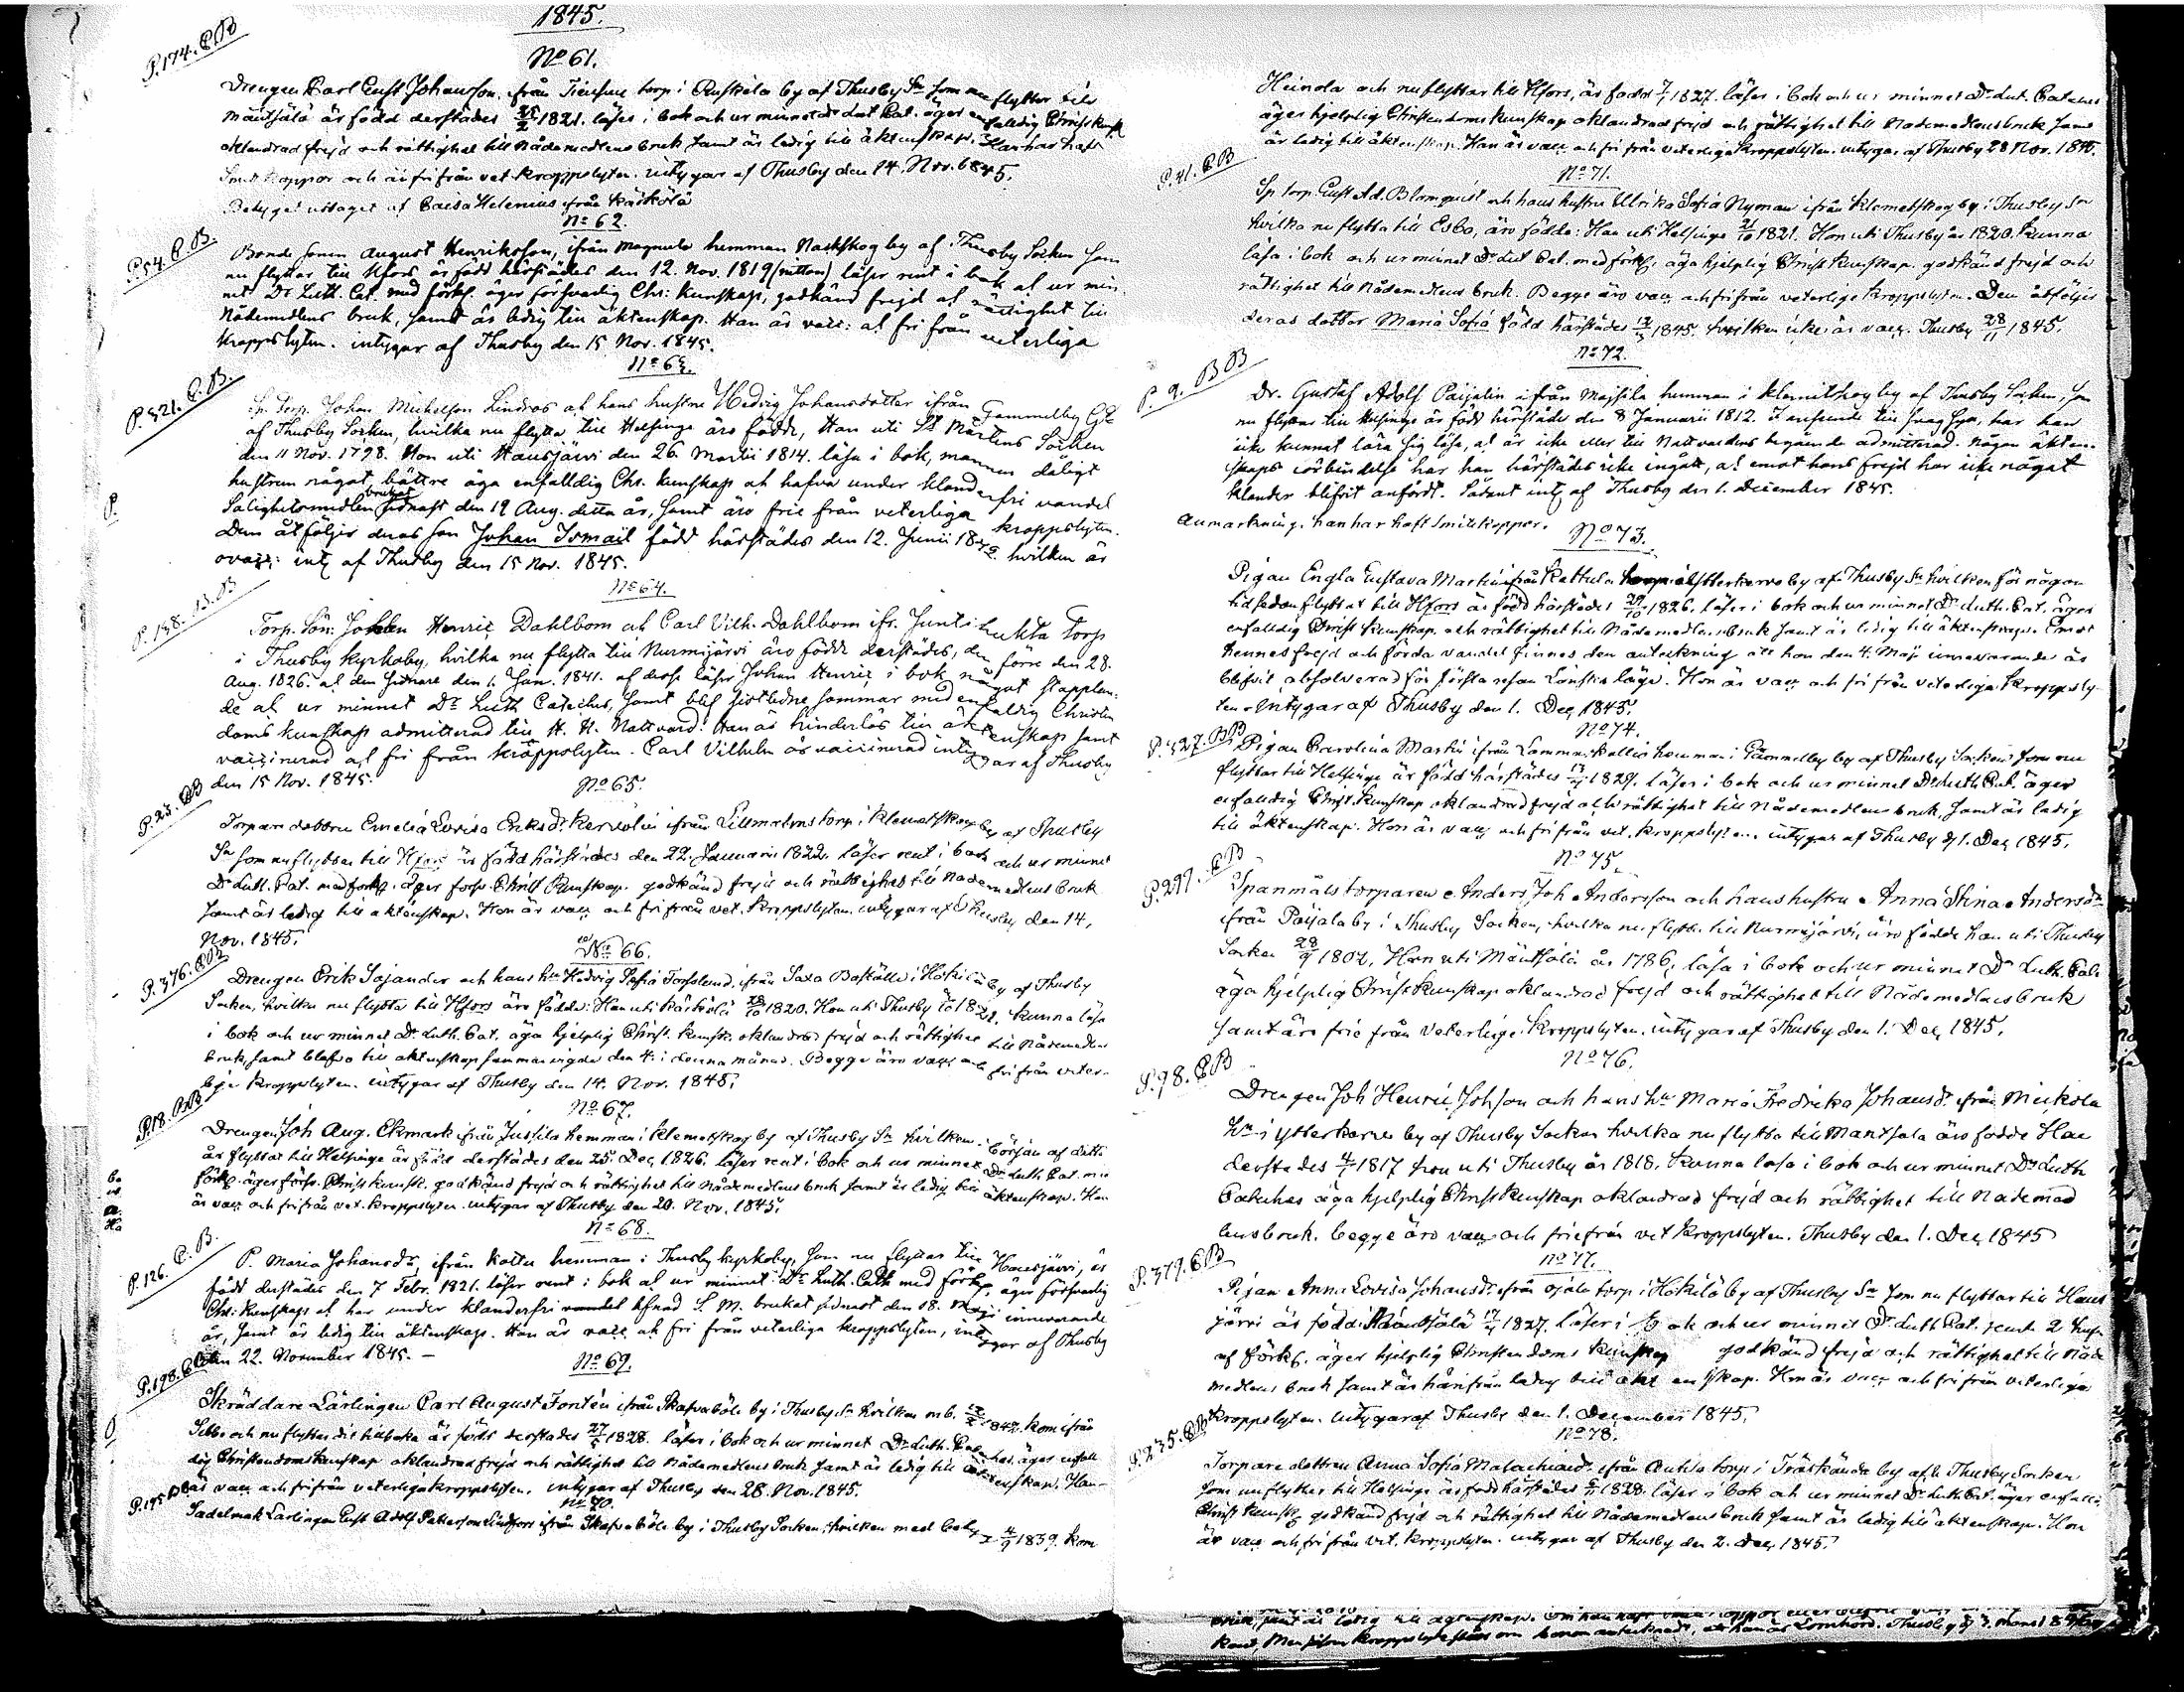 1845.
P. 174. CB
No 61.
Drengen Carl Gust Johansson, ifrån torp i Ruskela by af Thusby Sn som nu flyttar till
Mäntsälä är född derstädes 25/2 1821. läser i bok och ur minnet Dr Lut Cat. äger enfalldig Christ Kunsk
oklandrad frejd och rättighet till Nådemedlens bruk samt är ledig till äktenskap. Han har haft
Smittkoppor och är fri från vet. kroppslyten. intygar af Thusby den 14. Nov. 1845.
Betyget uttaget af Caisa Helenius ifrån Kärkölä
No 62.
P. 54. C.B.
Bonde Sonen August Henriksson, ifrån Magnula hemman Nackskog by af Thusby Socken som
nu flyttar till Hfors är född härstädes den 12. Nov. 1819 (nitton) läser rent i bok at ur min-
net Dr Luth. Cat. med förkl. äger försvarlig Chr: Kunskap, godkänd frejd at rättighet till
Nådemedlens bruk, samt är ledig till äktenskap. Han är vacc: at fri från veterliga
kroppslyten. intygar af Thusby den 15 Nov. 1845.
No 63.
P. 321. C.B.
Sp. Torp. Johan Michelsson Lindros at hans hustru Hedvig Johansdotter ifrån Gammelby
af Thusby Socken, hvilka nu flytta till Helsinge äro födde, Han uti St Mårtens Socken
den 11 Nov. 1798. Hon uti Hausjärvi den 26 Martii 1814. läsa i bok, mannen dåligt
hustrun något bättre äga enfalldig Chr. kunskap at hafva under klanderfri vandel
Salighetsmedlen brukat sednast den 19 Aug. detta år, samt äro frie från veterliga kroppslyten.
Dem åtföljer deras son Johan Ismaël född härstädes den 12. Junii 1842 hvilken är
ovacc: int af Thusby den 15 Nov. 1845.
No 64.
P. 138. B.B
Torp. Sön: Johan Henric Dahlbom at Carl Vilh. Dahlbom ifr. Juntilukta Torp
i Thusby Kyrkoby, hvilka nu flytta till Nurmijärvi äro födde derstädes, den förre den 28.
Aug. 1826. at den sednare den 1. Jan. 1841. af desse läser Johan Henric i bok något stapplan-
de at ur minnet Dr Luth Cateches, samt blef sistledne sommar med enfaldig Christen
doms kunskap admitterad till H. H. Nattvard. Han är hinderlös till äktenskap samt
vaccinerad at fri från kroppslyten. Carl Vilhelm är vaccinerad intygar af Thusby
den 15 Nov. 1845.
No 65.
P. 25. CB
Torpare dottren Emelia Lovisa Eriksdr Kervolin ifrån Lillmalms torp i Klemetskog by af Thusby
Sn som nu flyttar till Hfors är född härstädes den 22. Januarii 1822. läser rent i bok och ur minnet
Dr Luth. Cat. med förkl. äger försv. Christ Kunskap. godkänd frejd och rättighet till Nådemedlens bruk
samt är ledig till äktenskap. Hon är vacc och fri från vet. kroppslyten. intygar af Thusby den 14.
Nov. 1845.
No 66.
P. 376. CB
Drengen Erik Sajander och hans hu Hedvig Sofia Forsslund, ifrån Saxa Boställe i Hökilä by af Thusby
Socken, hvilka nu flytta till Hfors äro födde: Han uti Kärkölä 1820. Hon uti Thusby kunna läsa
i bok och ur minnet Dr Luth. Cat. äga hjelplig Christ. kunsk. oklandrad frejd och rättighet till Nådemedlens
bruk, samt blefvo till äktenskap sammanvigde den 4. i denna månad. Begge äro vacc och fri från veter-
liga kroppslyten. intygar af Thusby den 14. Nov. 1845.
No 67.
P. 18. BB
Drengen Joh Aug. Ekmark ifrån Jussila hemman i Klemetskog by af Thusby Sn hvilken i början af detta
år flyttat till Helsinge är född derstädes den 25. Dec. 1826. läser rent i bok och ur minnet Dr Luth Cat. med
förkl. äger försv. Christ kunsk. godkänd frejd och rättighet till Nådemedlens bruk samt är ledig till äktenskap. Han
är vacc och fri från vet. kroppslyten. intygar af Thusby den 20. Nov. 1845.
No 68.
P. 126. C.B.
P. Maria Johansdr, ifrån Kattu hemman i Thusby kyrkoby, som nu flyttar till Hausjärvi, är
född derstädes den 7 Febr. 1821. läser rent i bok at ur minnet Dr Luth. Cath med förkl. äger försvarlig
Chr: Kunskap at har under klanderfri vandel S. M. brukat sednast den 18. Maji innevarande
år, samt är ledig till äktenskap. Hon är vacc at fri från veterliga kroppslyten, intygar af Thusby
den 22. November 1845. –
No 69.
P. 198.
Skräddare Lärlingen Carl August Fontén ifrån Skafvaböle by i Thusby Sn hvilken m. b. 1842. kom ifrån
Sibbo och nu flyttar dit tillbaka är född derstädes 27/5 1828. läser i bok och ur minnet Dr Luth. Cateches, äger enfall
dig Christendoms kunskap oklandrad frejd och rättighet till Nådemedlens bruk samt är ledig till äktenskap. Han
är vacc och fri från veterliga kroppslyten. intygar af Thusby den 28. Nov. 1845.
No 70.
P. 195
Sadelmak Lärlingen Gust Adolf Pettersson Lindfors ifrån Skafvaböle by i Thusby Socken, hvilken med betyg 4/9 1839. kom
Heinola och nu flyttar till Hfors, är född 1827. läser i bok och ur minnet Dr Lut. Cateches
äger hjelplig Christendoms kunskap oklandrad frejd och rättighet till Nådemedlens bruk samt
är ledig till äktenskap. Han är vacc och fri från veterliga kroppslyten. intygar af Thusby 28 Nov. 1845.
No 71.
P. 41. CB
Sp torp. Gust Ad. Blomquist och hans hustru Ulrika Sofia Nyman ifrån Klemetskog by i Thusby Sn
hvilka nu flytta till Esbo, äro födde: Han uti Helsinge 21/10 1821. Hon uti Thusby år 1820. Kunna
läsa i bok och ur minnet Dr Lut Cat. med förkl. äga hjelplig Christ kunskap. godkänd frejd och
rättighet till Nådemedlens bruk. Begge äro vacc och fri från veterlige kroppslyten. Dem åtföljer
deras dotter Maria Sofia född härstädes 1845. hvilken icke är vacc. Thusby 28/11 1845.
No 72.
P. 9. BB
Dr. Gustaf Adolf Päijalin ifrån Majsila hemman i Klemitskog by af Thusby Socken, som
nu flyttar till Helsinge är född härstädes den 8 Januarii 1812. I anseende till svag syn, har han
icke kunnat lära sig läsa, at är icke eller till Nattvardens begående admitterad. någon äkten-
skaps förbindelse har han härstädes icke ingått, at emot hans frejd har icke något
klander blifvit anfördt. Sådant int af Thusby den 1. December 1845.
Anmärkning. han har haft Smittkoppor.
No 73.
Pigan Engla Gustava Martin ifrån Kattula i Ytterkervo by af Thusby Sn hvilken för någon
tid sedan flyttat till Hfors är född härstädes 29/10 1826. läser i bok och ur minnet Dr Luth. Cat. äger
enfalldig Christ Kunskap och rättighet till Nådemedlens bruk samt är ledig till äktenskap. Emot
hennes frejd och förda vandel finnes den anteckning att hon den 4. Maji innevarande år
blifvit absolverad för första resan Lönska läge. Hon är vacc och fri från veterliga kroppsly-
ten. Intygar af Thusby den 1. Dec. 1845.
No 74.
P. 327. BB
Pigan Carolina Martin ifrån Lamminkallio hemman i Gammelby by af Thusby Socken som nu
flyttar till Helsinge är född härstädes 1829. läser i bok och ur minnet Dr Luth Cat. äger
enfalldig Christ. Kunskap oklandrad frejd och rättighet till Nådemedlens bruk, samt är ledig
till äktenskap. Hon är vacc och fri från vet. kroppslyten. intygar af Thusby d 1. Dec. 1845.
No 75.
P. 297. CB
Spanmåls torparen Anders Joh Andersson och hans hustru Anna Stina Andersdr
ifrån Paijala by i Thusby Socken, hvilka nu flytta till Nurmijärvi, äro födde han uti Thusby
Socken 28/9 1802, Hon uti Mäntsälä år 1786, läsa i bok och ur minnet Dr Luth. Cate
äga hjelplig Christ kunskap oklandrad frejd och rättighet till Nådemedlens bruk
samt äro frie från veterlige kroppslyten. intygar af Thusby den 1. Dec. 1845.
No 76.
P. 98. CB
Drengen Joh Henric Johsson och hans hu Maria Fredrika Johansdr ifrån Mickola
hn i Ytterkervo by af Thusby Socken hvilka nu flytta till Mäntsälä äro födde Han
derstädes 1817 hon uti Thusby år 1818. Kunna läsa i bok och ur minnet Dr Luth
Cateches äga hjelplig Christ kunskap oklandrad frejd och rättighet till Nådemed
lens bruk. begge äro vacc och frie från vet kroppslyten. Thusby den 1. Dec. 1845
No 77.
P. 379. CB
Pigan Anna Lovisa Johansdr ifrån Ojala torp i Hökilä by af Thusby Sn som nu flyttar till Haus
järvi är född i Mäntsälä 1827. läser i bok och ur minnet Dr Luth Cat. jemte 2 hufv
af förkl. äger hjelplig Christendoms kunskap godkänd frejd och rättighet till Nåde
medlens bruk samt är härifrån ledig till äktenskap. Hon är vacc och fri från veterliga
kroppslyten. intygar af Thusby den 1. December 1845.
No 78.
P. 235. CB
Torpare dottren Anna Sofia Malachiasdr ifrån Anttila torp i Träskända by af Thusby Socken
som nu flyttar till Helsinge är född härstädes 1828. läser i bok och ur minnet Dr Luth Cat. äger enfalld.
Christ kunsk godkänd frejd och rättighet till Nådemedlens bruk samt är ledig till äktenskap. Hon
är vacc och fri från vet. kroppslyten. intygar af Thusby den 2. Dec. 1845.